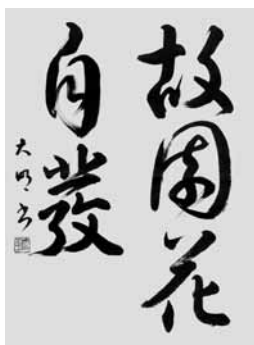 故園花
自發
大明书